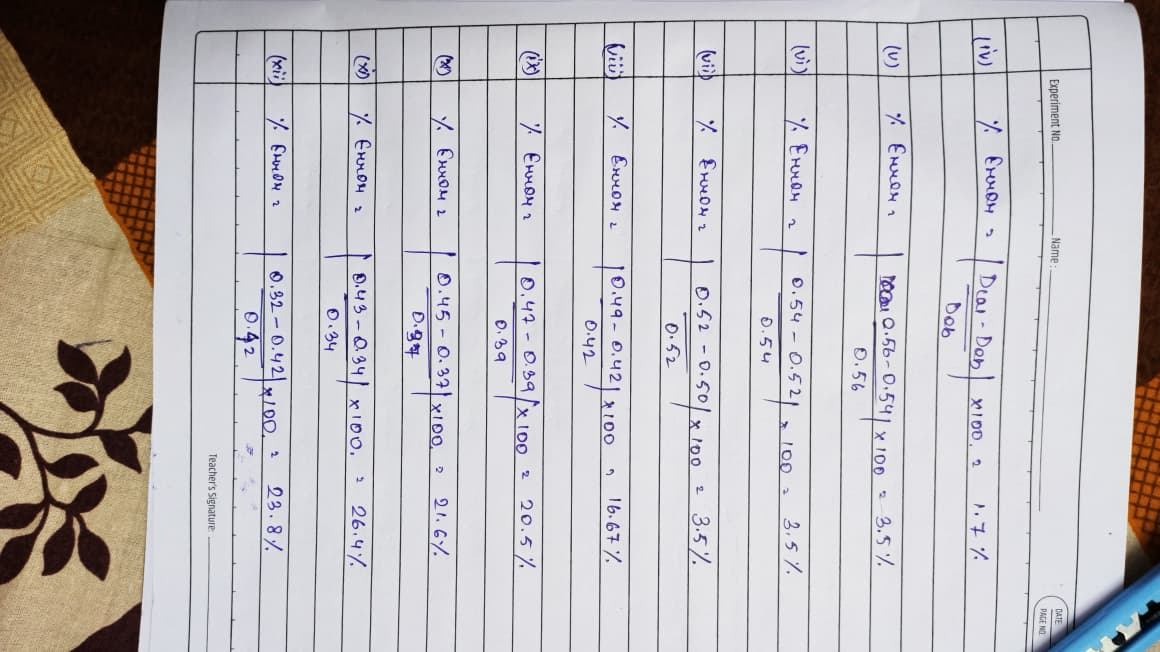 Experiment No. Name :
DATE:
PAGE NO.
(iv) % Error = | Dcal - Dob / Dob | ×100. = 1.7 %
(v) % Error = | 0.56 - 0.54 / 0.56 | × 100 = 3.5 %
(vi) % Error = | 0.54 - 0.52 / 0.54 | × 100 = 3.5 %
(vii) % Error = | 0.52 - 0.50 / 0.52 | × 100 = 3.5%
(viii) % Error = | 0.49 - 0.42 / 0.42 | ×100 = 16.67 %
(ix) % Error = | 0.47 - 0.39 / 0.39 | ×100 = 20.5 %
(x) % Error = | 0.45 - 0.37 / 0.37 | ×100. = 21.6%
(xi) % Error = | 0.43 - 0.34 / 0.34 | ×100. = 26.4%
(xii) % Error = | 0.32 - 0.42 / 0.42 | ×100. = 23.8%
Teacher's Signature: